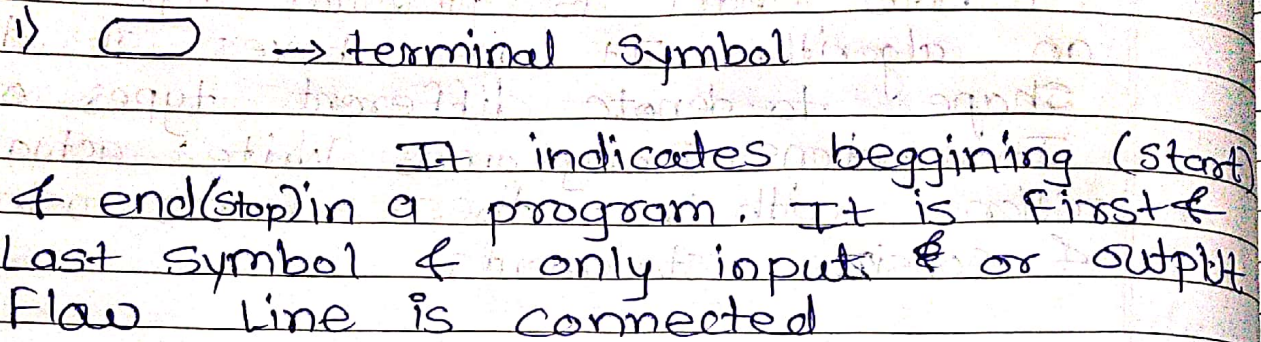 1) → terminal symbol
It indicates beggining (start)
& end(stop) in a program. It is First &
Last symbol & only input or output
Flow Line is connected